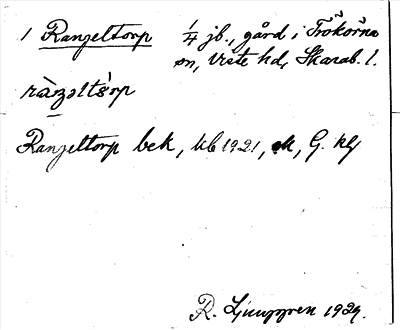 1 Ranzeltorp 1/4 jb., gård i Trökörna
sn, Viste hd, Skarab. l.
ràzəltsòrp
Ranzeltorp bek, kb 1921, ek, G. klj
R. Ljunggren 1927.